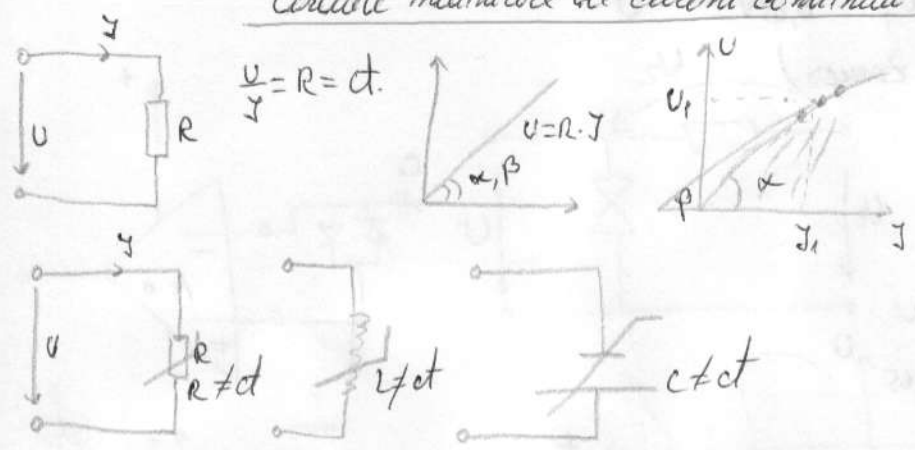 Circuite neliniare de curent continuu
I
U
R
U/I = R = ct.
U = R·I
α, β
U
U₁
β
α
I₁
I
I
U
R
R ≠ ct
L ≠ ct
C ≠ ct